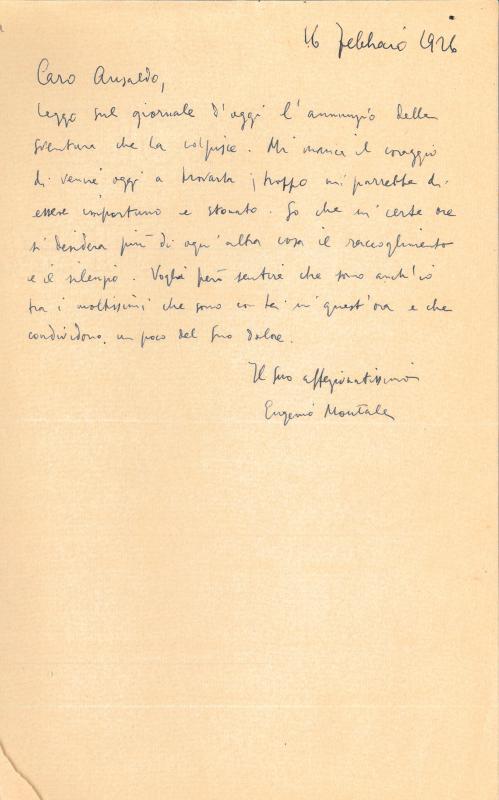 16 febbraio 1926
Caro Ansaldo,
leggo sul giornale d'oggi l'annunzio della
sventura che la colpisce. Mi manca il coraggio
di venire oggi a trovarla; troppo mi parrebbe di
essere importuno e stonato. So che in certe ore
si desidera più di ogni altra cosa il raccoglimento
e il silenzio. Voglia però sentire che sono anch'io
tra i moltissimi che sono con Lei in quest'ora e che
condividono un poco del Suo dolore.
Il Suo affezionatissimo
Eugenio Montale